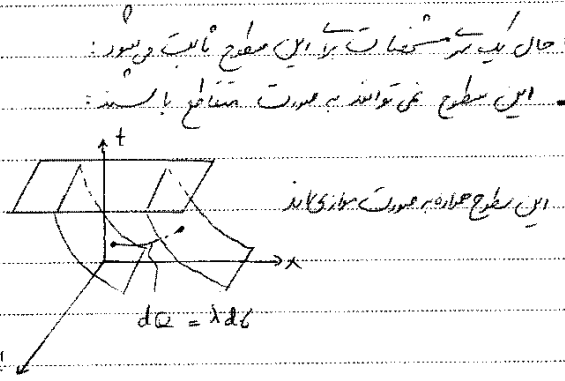 حال یک سری مشخصات برای این سطوح ثابت می‌شود:
• این سطوح نمی‌توانند به صورت متقاطع باشند:
t
این سطوح همواره به صورت موازی‌اند
x
dQ = λdσ